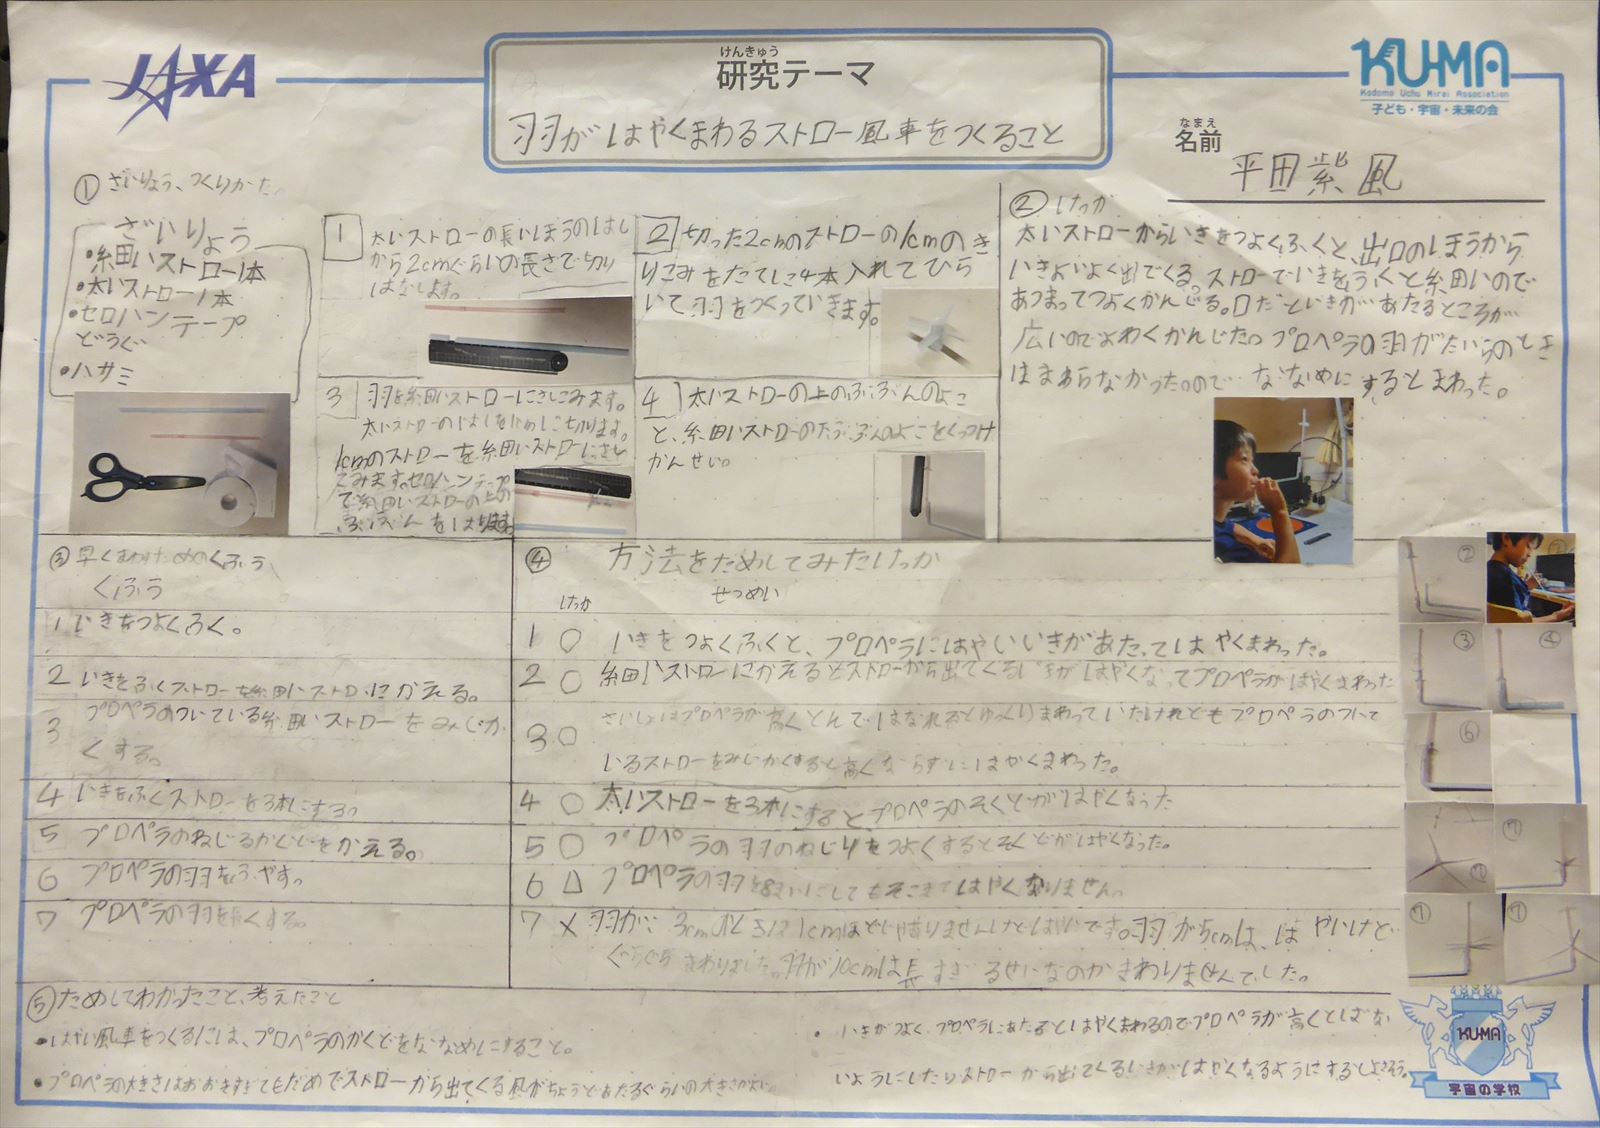 JAXA
けんきゅう
研究テーマ
羽がはやくまわるストロー風車をつくること
KU-MA
Kodomo Uchu Mirai Association
子ども・宇宙・未来の会
なまえ
名前
平田紫風
① ざいりょう、つくりかた。
ざいりょう
・細いストロー1本
・太いストロー1本
・セロハンテープ
どうぐ
・ハサミ
1 太いストローの長いほうのはし
から2cmぐらいの長さで切り
はなします。
2 切った2cmのストローの1cmのき
りこみをたてに4本入れてひら
いて羽をつくっていきます。
3 羽を細いストローにさしこみます。
太いストローのはしをななめに切ります。
1cmのストローを細いストローにさし
こみます。セロハンテープ
で細いストローの上の
ぶぶんをはります。
4 太いストローの上のぶぶんのよこ
と、細いストローの ぶぶんのよこをくっつけ
かんせい。
② けっか
太いストローからいきをつよくふくと、出口のほうから
いきよいよく出てくる。ストローでいきをふくと細いので
あつまってつよくかんじる。口だといきがあたるところが
広いのでよわくかんじた。プロペラの羽がたいらのとき
はまわらなかった。ので ななめにするとまわった。
③ 早くまわすためのくふう
くふう
1 いきをつよくふく。
2 いきをふくストローを細いストローにかえる。
3 プロペラのついている細いストローをみじか
くする。
4 いきをふくストローを3本にする。
5 プロペラのねじるかくどをかえる。
6 プロペラの羽をふやす。
7 プロペラの羽を長くする。
④ 方法をためしてみたけっか
けっか せつめい
1 ○ いきをつよくふくと、プロペラにはやいいきがあたってはやくまわった。
2 ○ 細いストローにかえるとストローから出てくるいきがはやくなってプロペラがはやくまわった
3 ○ さいしょはプロペラが高くとんではなれるとゆっくりまわっていたけれどもプロペラのついて
いるストローをみじかくすると高くならずにはやくまわった。
4 ○ 太いストローを3本にするとプロペラのそくどがはやくなった
5 ○ プロペラの羽のねじりをつよくするとそくどがはやくなった。
6 △ プロペラの羽を8まいにしてもそこまではやくなりません。
7 × 羽が 3cm 1cmほどじゃありませんけどはやいです。羽が5cmは、はやいけど
ぐらぐらまわりました。羽が10cmは長すぎるせいなのかまわりませんでした。
② ② ③ ④ ⑥ ⑦ ⑦ ⑦ ⑦
⑤ ためしてわかったこと、考えたこと
・はやい風車をつくるには、プロペラのかくどをななめにすること。
・プロペラの大きさはおおきすぎてもだめでストローから出てくる風がちょうどあたるぐらいの大きさがよい
・いきがつよく、プロペラにあたるとはやくまわるのでプロペラが高くとばな
いようにしたりストローから出てくるいきがはやくなるようにするとよさそう。
KU-MA
宇宙の学校